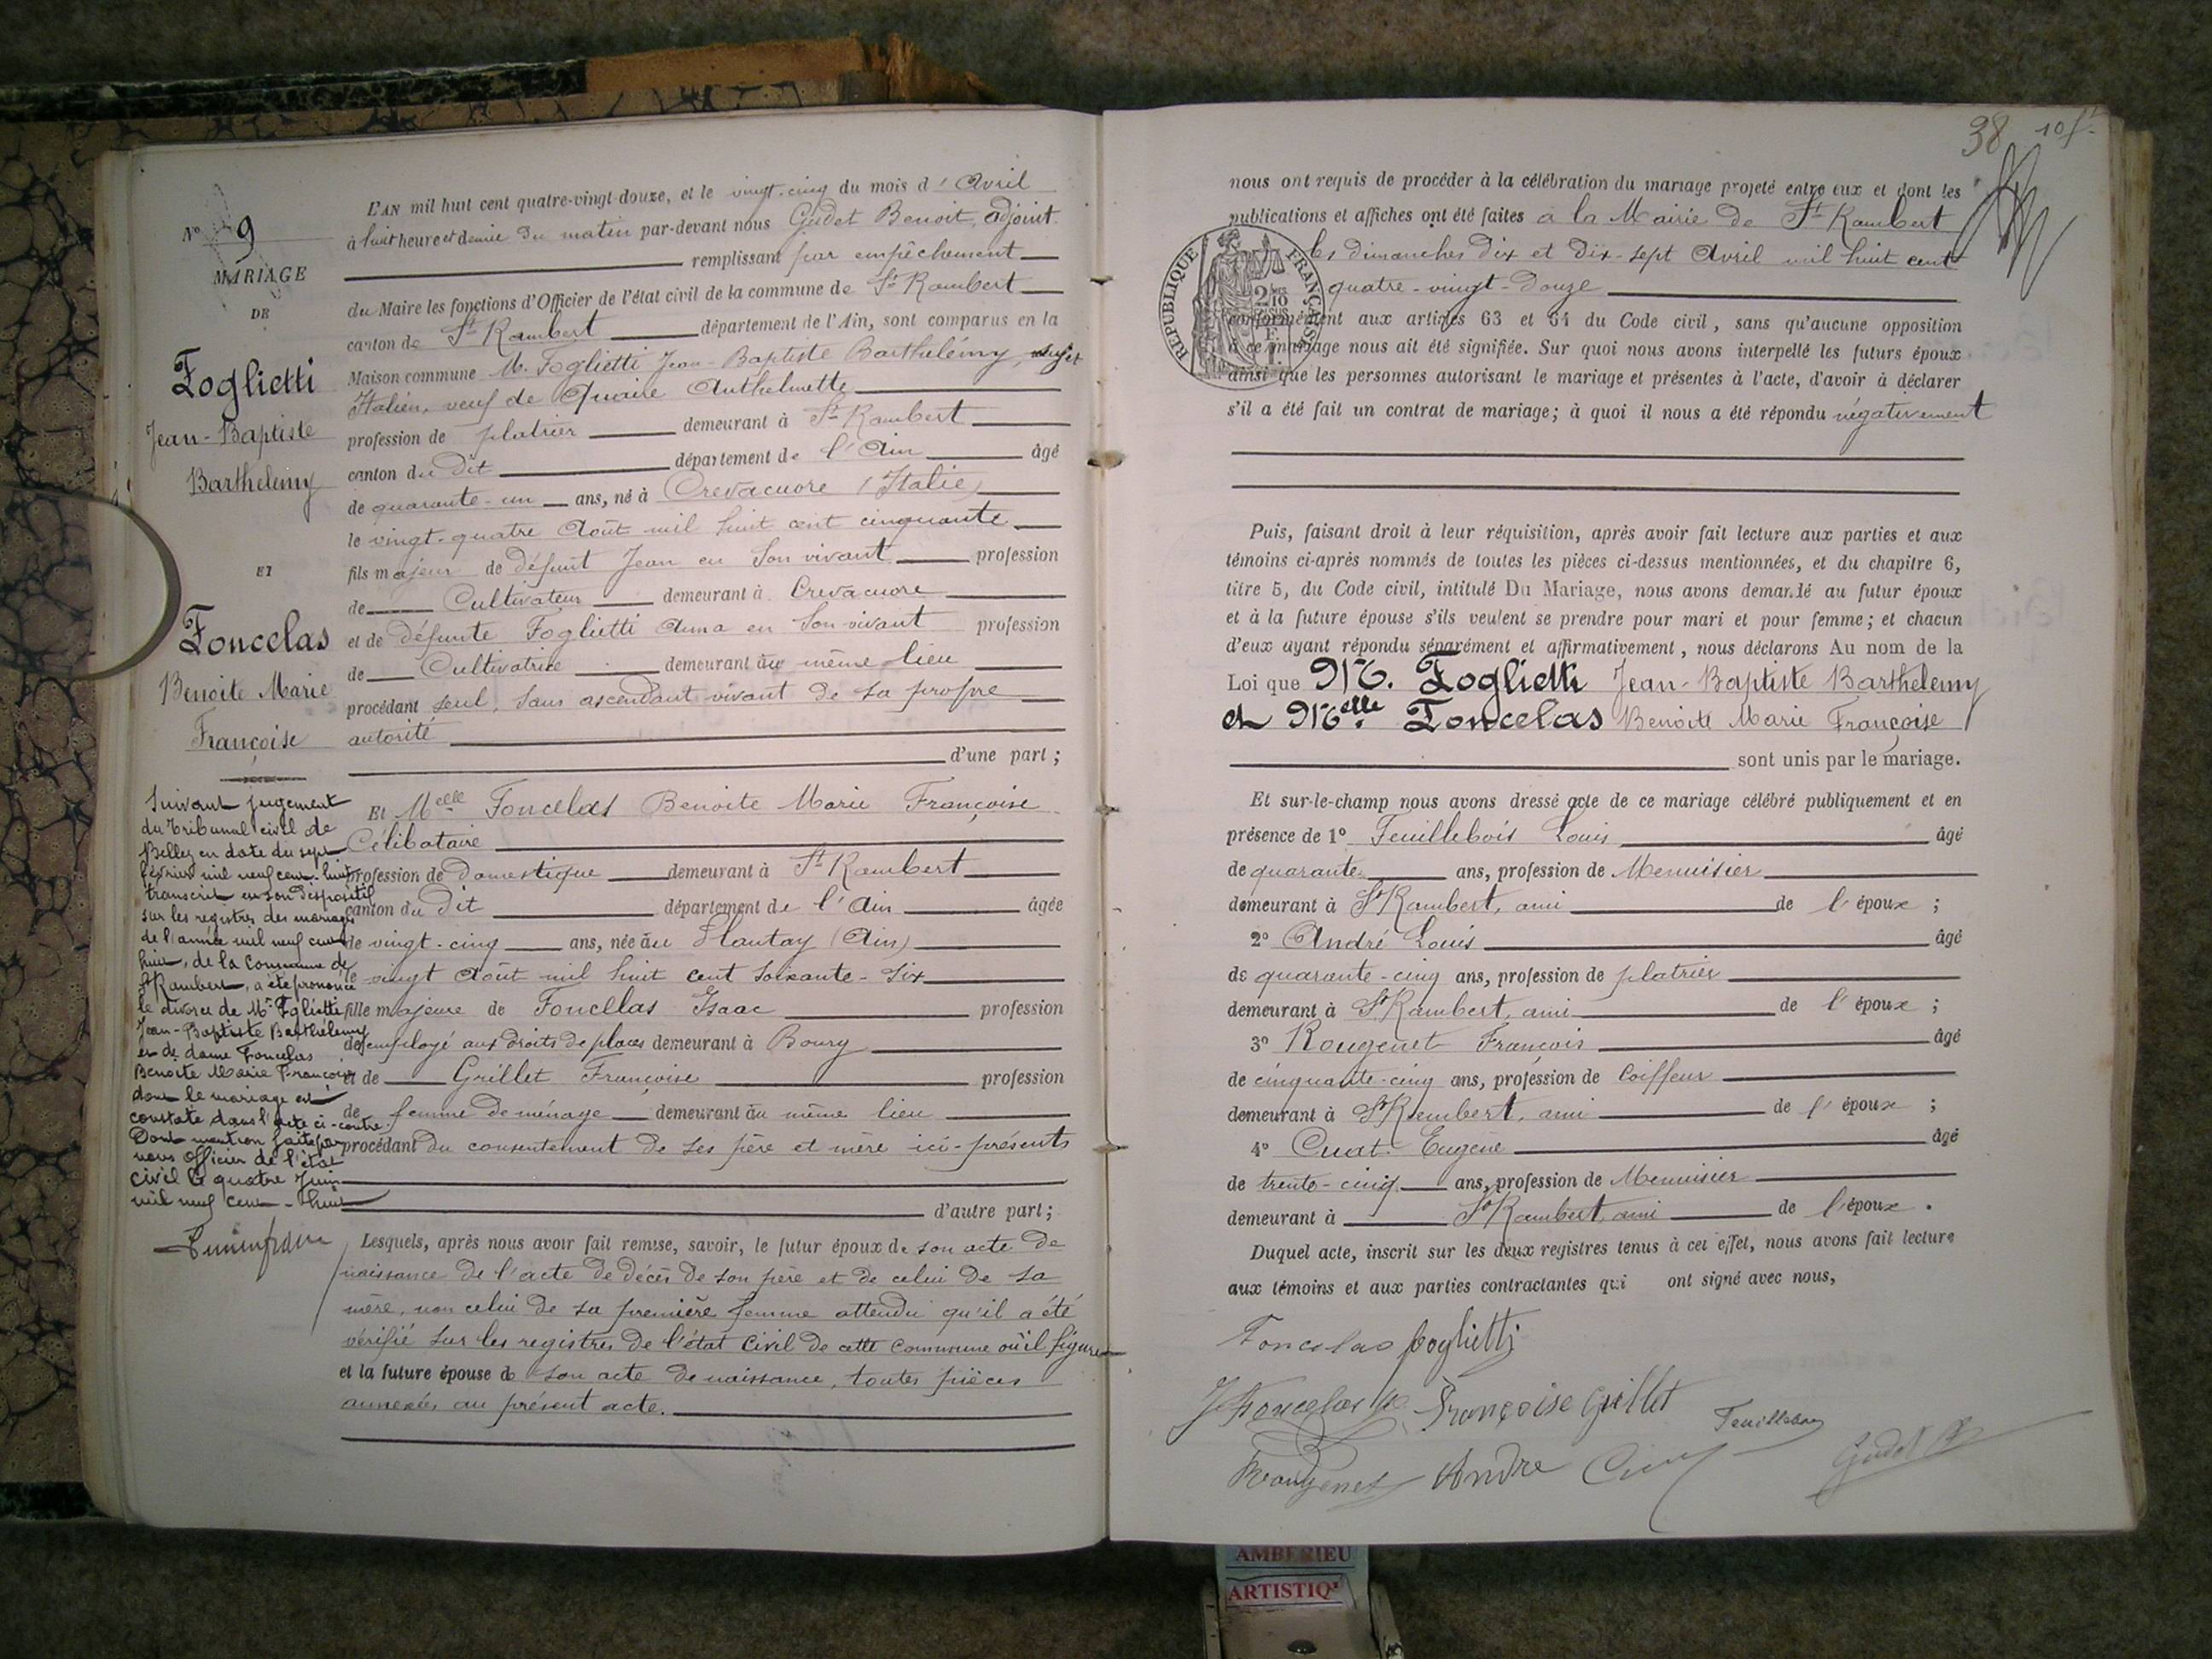 N° 9
MARIAGE
DE
Foglietti
Jean-Baptiste
Barthelemy
ET
Foncelas
Benoite Marie
Françoise
Suivant jugement
du Tribunal civil de
Belley en date du sept
février mil neuf cent huit
transcrit en son dispositif
sur les registres des mariages
de l'année mil neuf cent
huit, de la Commune de
St Rambert, a été prononcé
le divorce de Mr Foglietti
Jean-Baptiste Barthelemy
et de dame Foncelas
Benoite Marie Françoise
dont le mariage est
constaté dans l'acte ci-contre.
Dont mention faite par
nous Officier de l'état
civil le quatre Juin
mil neuf cent-huit
L'AN mil huit cent quatre-vingt-douze, et le vingt-cinq du mois d'Avril
à huit heure et demie du matin par-devant nous Gudet Benoit, adjoint
remplissant par empêchement
du Maire les fonctions d'Officier de l'état civil de la commune de St Rambert
canton de St Rambert département de l'Ain, sont comparus en la
Maison commune M. Foglietti Jean-Baptiste Barthélémy, sujet
Italien, veuf de Quaire Anthelmette
profession de platrier demeurant à St Rambert
canton du dit département de l'Ain âgé
de quarante-un ans, né à Crevacuore (Italie)
le vingt-quatre Août mil huit cent cinquante
fils majeur de défunt Jean en son vivant profession
de Cultivateur demeurant à Crevacuore
et de défunte Foglietti Anna en son vivant profession
de Cultivatrice demeurant au même lieu
procédant seul, sans ascendant vivant de sa propre
autorité
d'une part ;
Et Melle Foncelas Benoite Marie Françoise
Célibataire
profession de Domestique demeurant à St Rambert
canton du dit département de l'Ain âgée
de vingt-cinq ans, née au Plantay (Ain)
le vingt Août mil huit cent soixante-six
fille majeure de Foncelas Isaac profession
de employé aux droits de places demeurant à Bourg
et de Grillet Françoise profession
de femme de ménage demeurant au même lieu
procédant du consentement de ses père et mère ici-présents
d'autre part ;
Lesquels, après nous avoir fait remise, savoir, le futur époux de son acte de
naissance de l'acte de décès de son père et de celui de sa
mère, non celui de sa première femme attendu qu'il a été
vérifié sur les registres de l'état civil de cette commune où il figure
et la future épouse de son acte de naissance, toutes pièces
annexées au présent acte.
38 10 f.
nous ont requis de procéder à la célébration du mariage projeté entre eux et dont les
publications et affiches ont été faites à la Mairie de St Rambert
les dimanches dix et dix-sept Avril mil huit cent
quatre-vingt-douze
RÉPUBLIQUE FRANÇAISE
conformément aux articles 63 et 64 du Code civil, sans qu'aucune opposition
à ce mariage nous ait été signifiée. Sur quoi nous avons interpellé les futurs époux
ainsi que les personnes autorisant le mariage et présentes à l'acte, d'avoir à déclarer
s'il a été fait un contrat de mariage; à quoi il nous a été répondu négativement
Puis, faisant droit à leur réquisition, après avoir fait lecture aux parties et aux
témoins ci-après nommés de toutes les pièces ci-dessus mentionnées, et du chapitre 6,
titre 5, du Code civil, intitulé Du Mariage, nous avons demandé au futur époux
et à la future épouse s'ils veulent se prendre pour mari et pour femme ; et chacun
d'eux ayant répondu séparément et affirmativement, nous déclarons Au nom de la
Loi que M. Foglietti Jean-Baptiste Barthelemy
et Melle Foncelas Benoite Marie Françoise
sont unis par le mariage.
Et sur-le-champ nous avons dressé acte de ce mariage célébré publiquement et en
présence de 1° Feuillebois Louis âgé
de quarante ans, profession de Menuisier
demeurant à St Rambert, ami de l'époux ;
2° André Louis âgé
de quarante-cinq ans, profession de platrier
demeurant à St Rambert, ami de l'époux ;
3° Rougenet François âgé
de cinquante-cinq ans, profession de Coiffeur
demeurant à St Rambert, ami de l'époux ;
4° Cuat Eugène âgé
de trente-cinq ans, profession de Menuisier
demeurant à St Rambert, ami de l'époux.
Duquel acte, inscrit sur les deux registres tenus à cet effet, nous avons fait lecture
aux témoins et aux parties contractantes qui ont signé avec nous,
Foncelas foglietti
Foncelas Françoise Grillet Feuillebois
Rougenet André Gudet B
AMBERIEU
ARTISTIQ